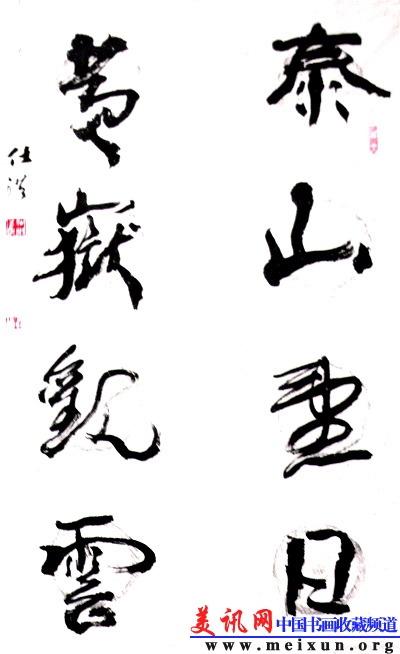 泰山日
嶽觀雲
仕
美讯网 中国书画收藏频道
www.meixun.org